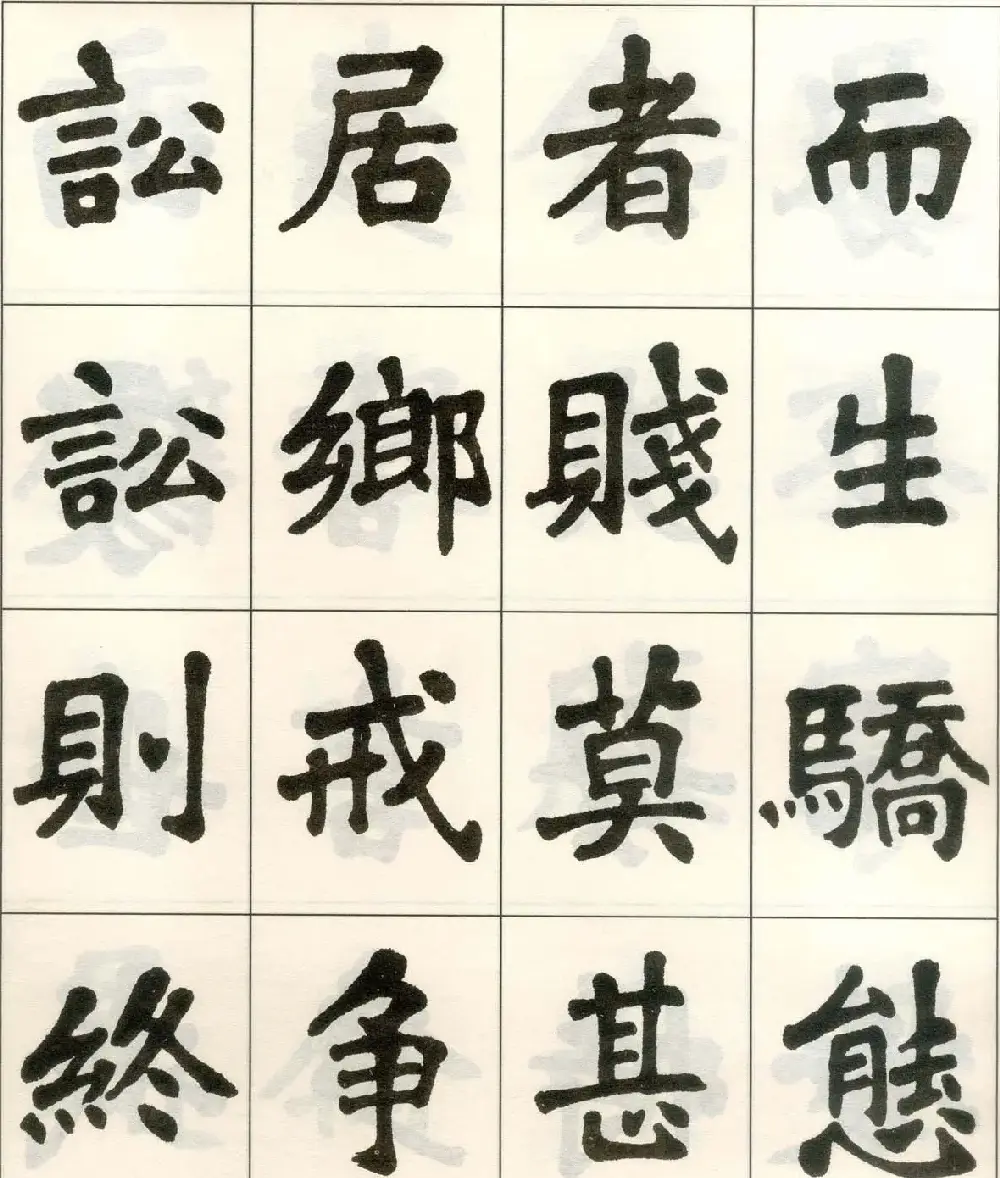 而生驕態
者賤莫甚
居鄉戒争
訟訟則終